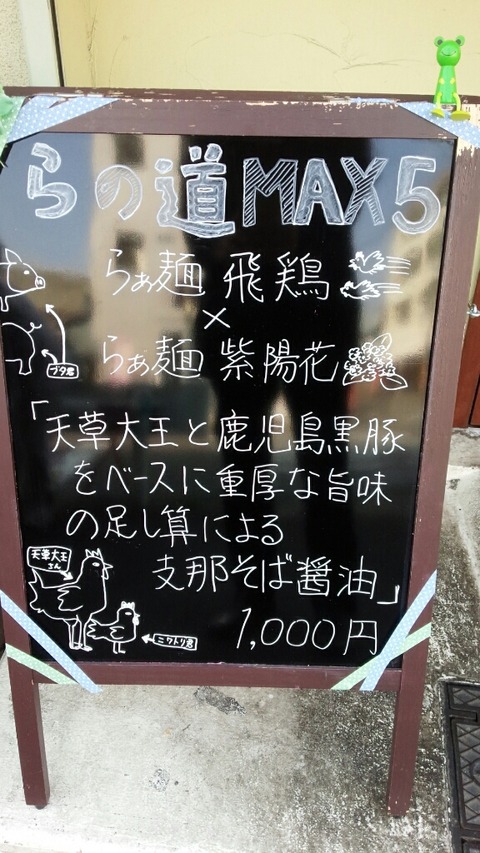 らの道MAX5
らぁ麺 飛鶏
×
らぁ麺 紫陽花
ブタ君
「天草大王と鹿児島黒豚
をベースに重厚な旨味
の足し算による
支那そば醤油」
天草大王
さん
ニワトリ君
1,000円